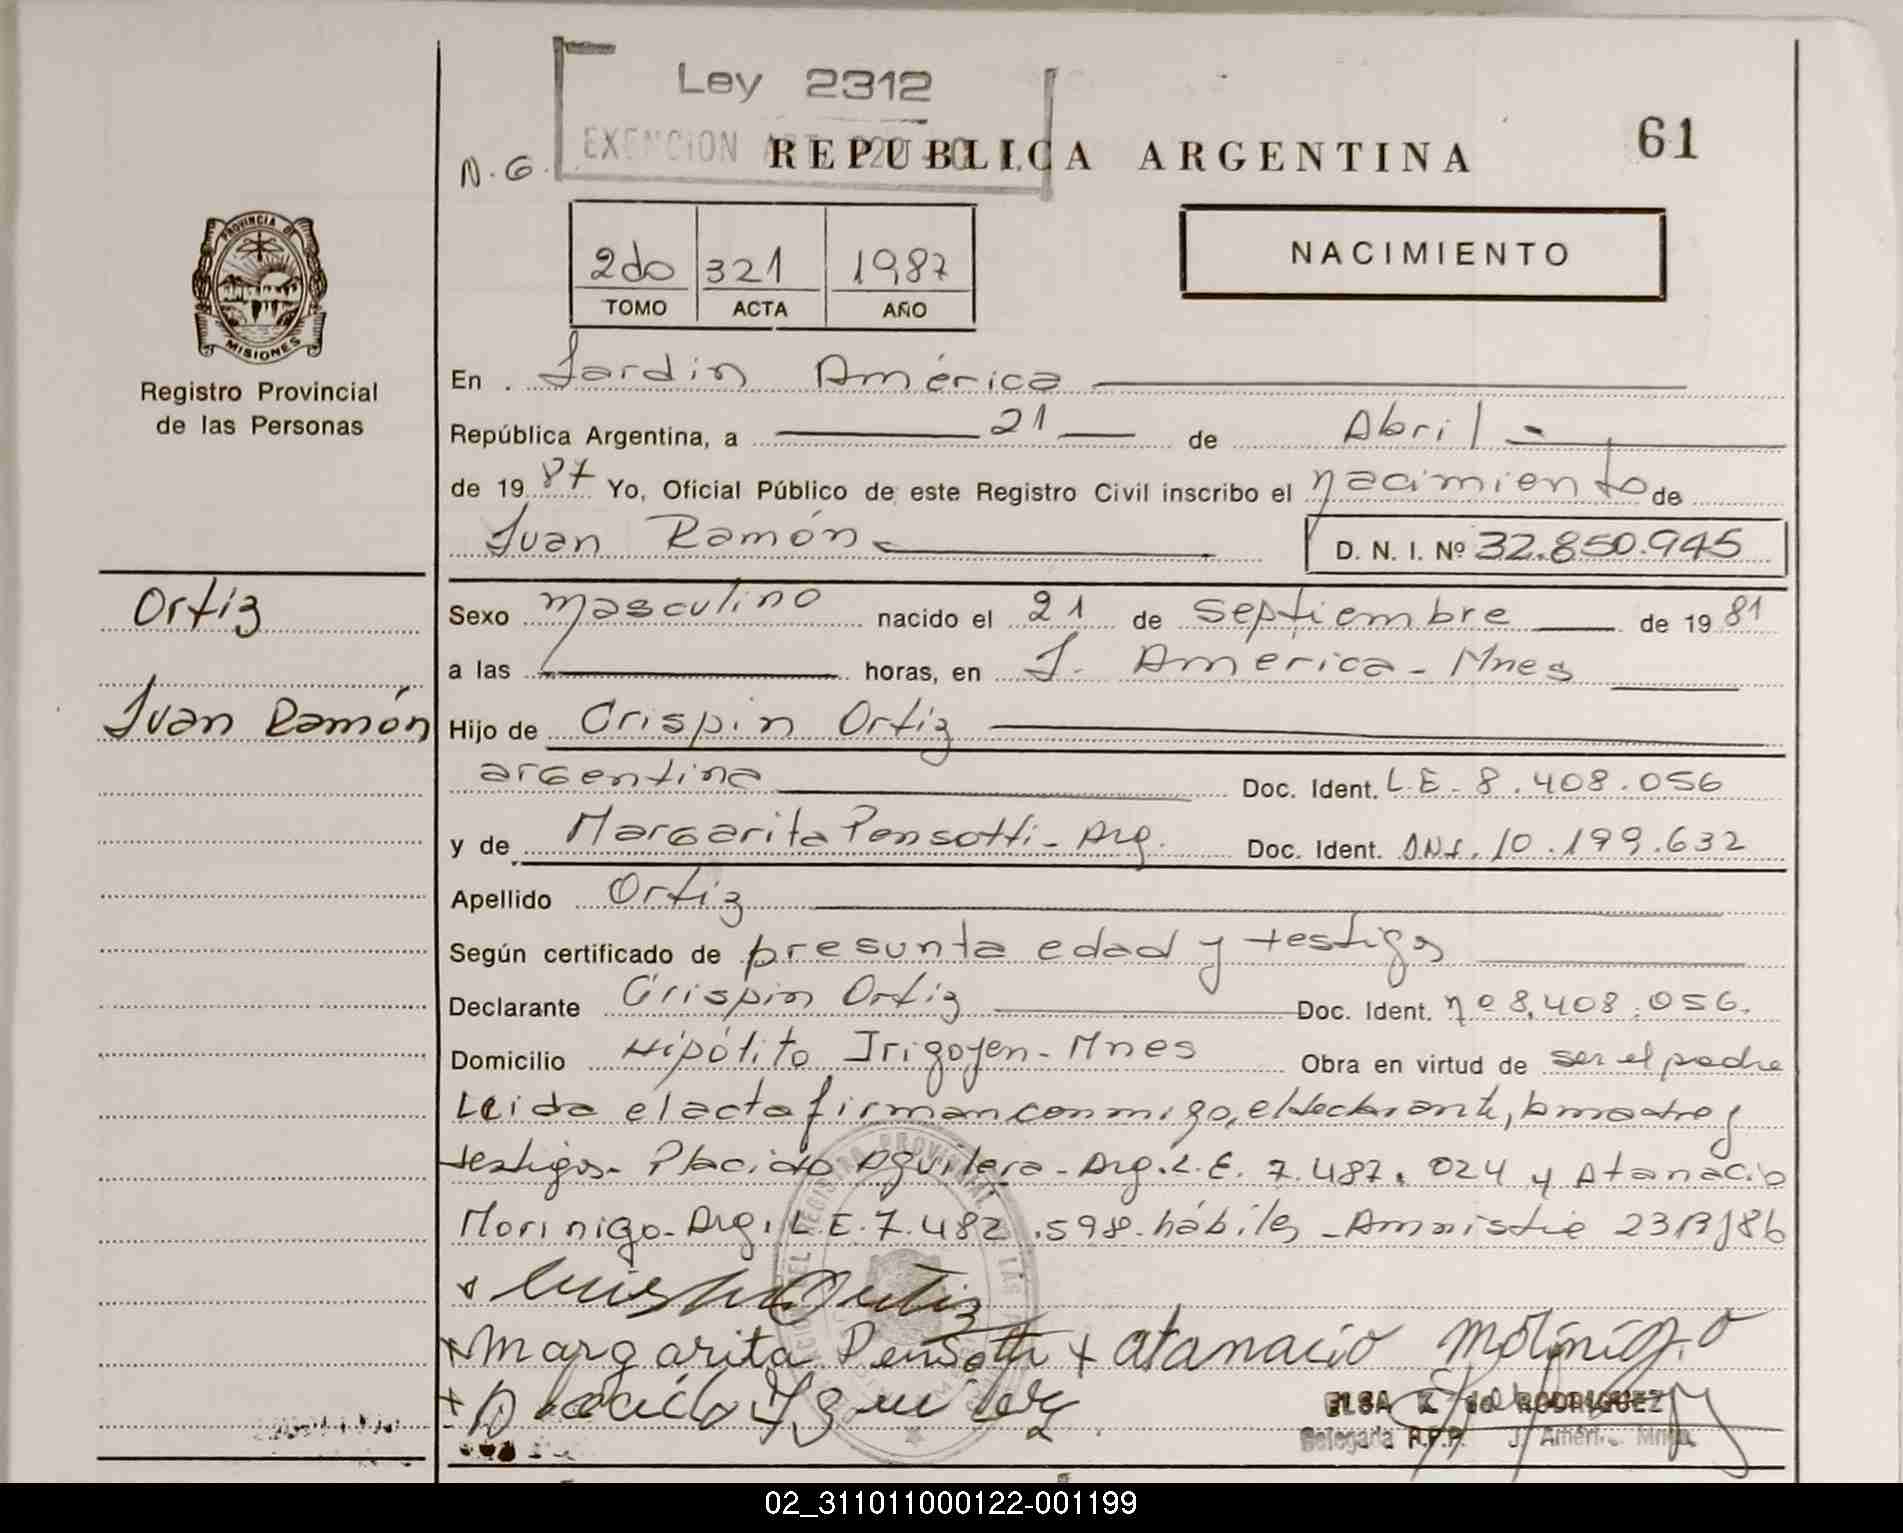 Ley 2312
EXENCION ART.
N.G. REPUBLICA ARGENTINA 61
PROVINCIA DE
MISIONES
2do 321 1987
TOMO ACTA AÑO
NACIMIENTO
Registro Provincial
de las Personas
En Jardin América
República Argentina, a 21 de Abril
de 19 87 Yo, Oficial Público de este Registro Civil inscribo el nacimiento de
Juan Ramón D. N. I. Nº 32.850.945
Ortiz
Juan Ramón
Sexo masculino nacido el 21 de septiembre de 19 81
a las horas, en J. America - Mnes
Hijo de Crispin Ortiz
argentina Doc. Ident. L.E. 8.408.056
y de Margarita Pensotti - Arg. Doc. Ident. D.N.I. 10.199.632
Apellido Ortiz
Según certificado de presunta edad y testigos
Declarante Crispin Ortiz Doc. Ident. nº 8.408.056.
Domicilio Hipólito Irigoyen - Mnes Obra en virtud de ser el padre
Leida el acta firman conmigo, el declarante, la madre y
testigos - Placido Aguilera - Arg. L.E. 7.487.024 y Atanacio
Morinigo - Arg. L.E. 7.482.598 - hábiles - Amnistia
Ortiz
Margarita Pensotti + atanacio Molinigo
+ Placido Aguilera
ELSA de RODRIGUEZ
Delegada R.P.P. J. Améri. Mnes.
02_311011000122-001199